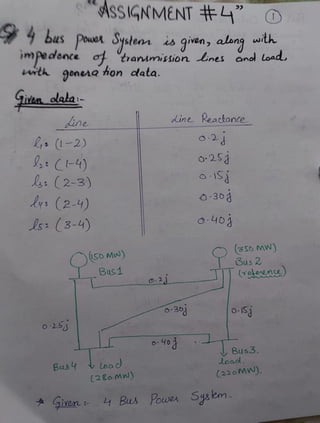 "ASSIGNMENT #4"
1
Q 4 bus power System is given, along with
impedance of transmission lines and load,
with generation data.
Given data:-
Line Line Reactance
l1= (1-2) 0.2j
l2= (1-4) 0.25j
l3= (2-3) 0.15j
l4= (2-4) 0.30j
l5= (3-4) 0.40j
(150 MW) (350 MW)
Bus 1 Bus 2
(reference)
0.2j
0.25j 0.30j 0.15j
0.40j
Bus 4 load Bus 3.
(280 MW) load.
(220 MW).
* Given:- 4 Bus Power System.